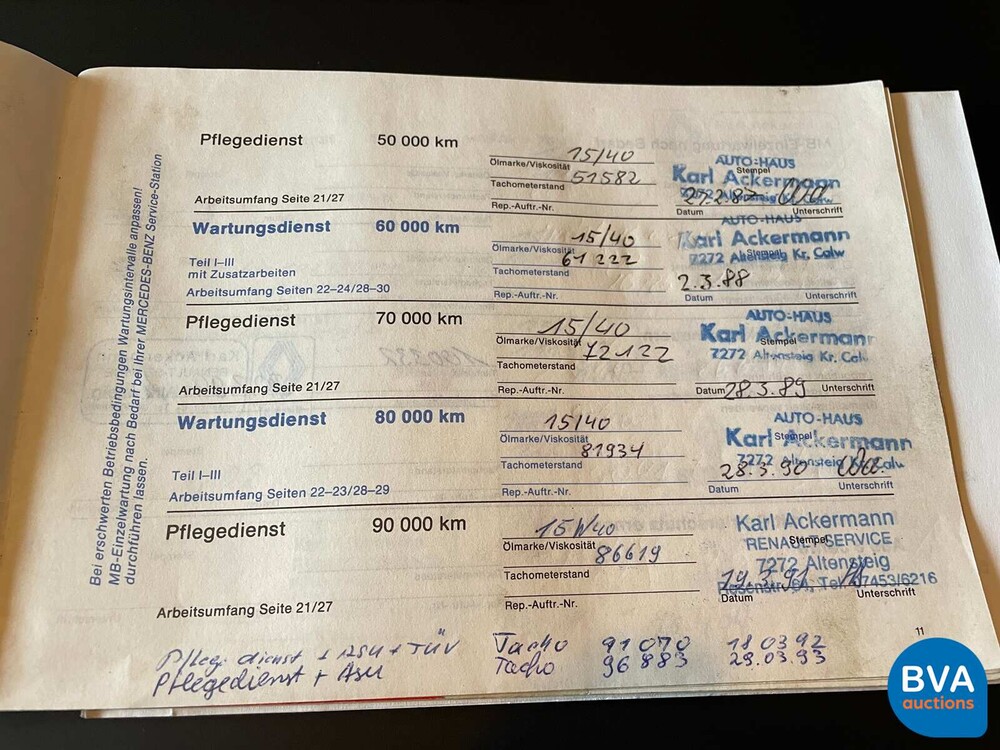 Bei erschwerten Betriebsbedingungen Wartungsintervalle anpassen!
MB-Einzelwartung nach Bedarf bei Ihrer MERCEDES-BENZ Service-Station
durchführen lassen.
Pflegedienst 50 000 km
15/40
Ölmarke/Viskosität
51582
Tachometerstand
Arbeitsumfang Seite 21/27
Rep.-Auftr.-Nr.
AUTO-HAUS
Stempel
Karl Ackermann
7272 Altensteig Kr. Calw
27.2.87
Datum Unterschrift
Wartungsdienst 60 000 km
15/40
Ölmarke/Viskosität
61222
Teil I–III
mit Zusatzarbeiten
Tachometerstand
Arbeitsumfang Seiten 22–24/28–30
Rep.-Auftr.-Nr.
AUTO-HAUS
Karl Ackermann
Stempel
7272 Altensteig Kr. Calw
2.3.88
Datum Unterschrift
Pflegedienst 70 000 km
15/40
Ölmarke/Viskosität
72122
Tachometerstand
Arbeitsumfang Seite 21/27
Rep.-Auftr.-Nr.
AUTO-HAUS
Karl Ackermann
Stempel
7272 Altensteig Kr. Calw
Datum 28.3.89 Unterschrift
Wartungsdienst 80 000 km
15/40
Ölmarke/Viskosität
81934
Teil I–III
Tachometerstand
Arbeitsumfang Seiten 22–23/28–29
Rep.-Auftr.-Nr.
AUTO-HAUS
Karl Ackermann
Stempel
7272 Altensteig Kr. Calw
28.3.90
Datum Unterschrift
Pflegedienst 90 000 km
15W40
Ölmarke/Viskosität
86619
Tachometerstand
Arbeitsumfang Seite 21/27
Rep.-Auftr.-Nr.
Karl Ackermann
RENAULT-SERVICE
Stempel
7272 Altensteig
Tel. 07453/6216
19.3.91
Datum Unterschrift
11
Pflegedienst + ASU + TÜV Tacho 91070 18.03.92
Pflegedienst + ASU Tacho 96983 29.03.93
BVA
auctions